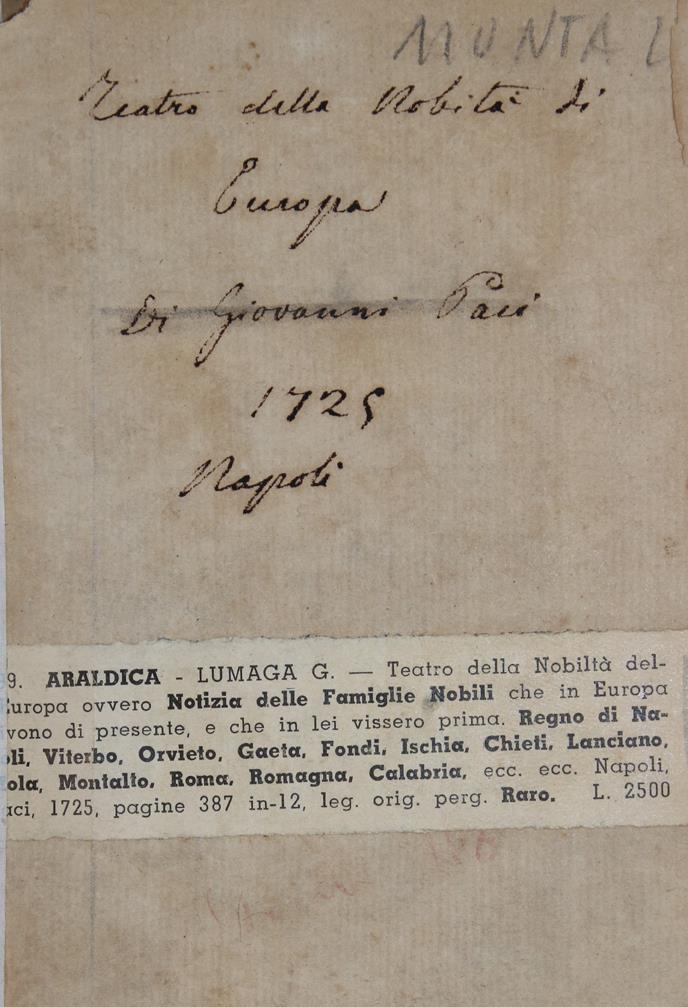 MONTAL
Teatro della Nobiltà di
Europa
Di Giovanni Paci
1725
Napoli
9. ARALDICA - LUMAGA G. — Teatro della Nobiltà del-
Europa ovvero Notizia delle Famiglie Nobili che in Europa
vono di presente, e che in lei vissero prima. Regno di Na-
oli, Viterbo, Orvieto, Gaeta, Fondi, Ischia, Chieti, Lanciano,
ola, Montalto, Roma, Romagna, Calabria, ecc. ecc. Napoli,
aci, 1725, pagine 387 in-12, leg. orig. perg. Raro. L. 2500